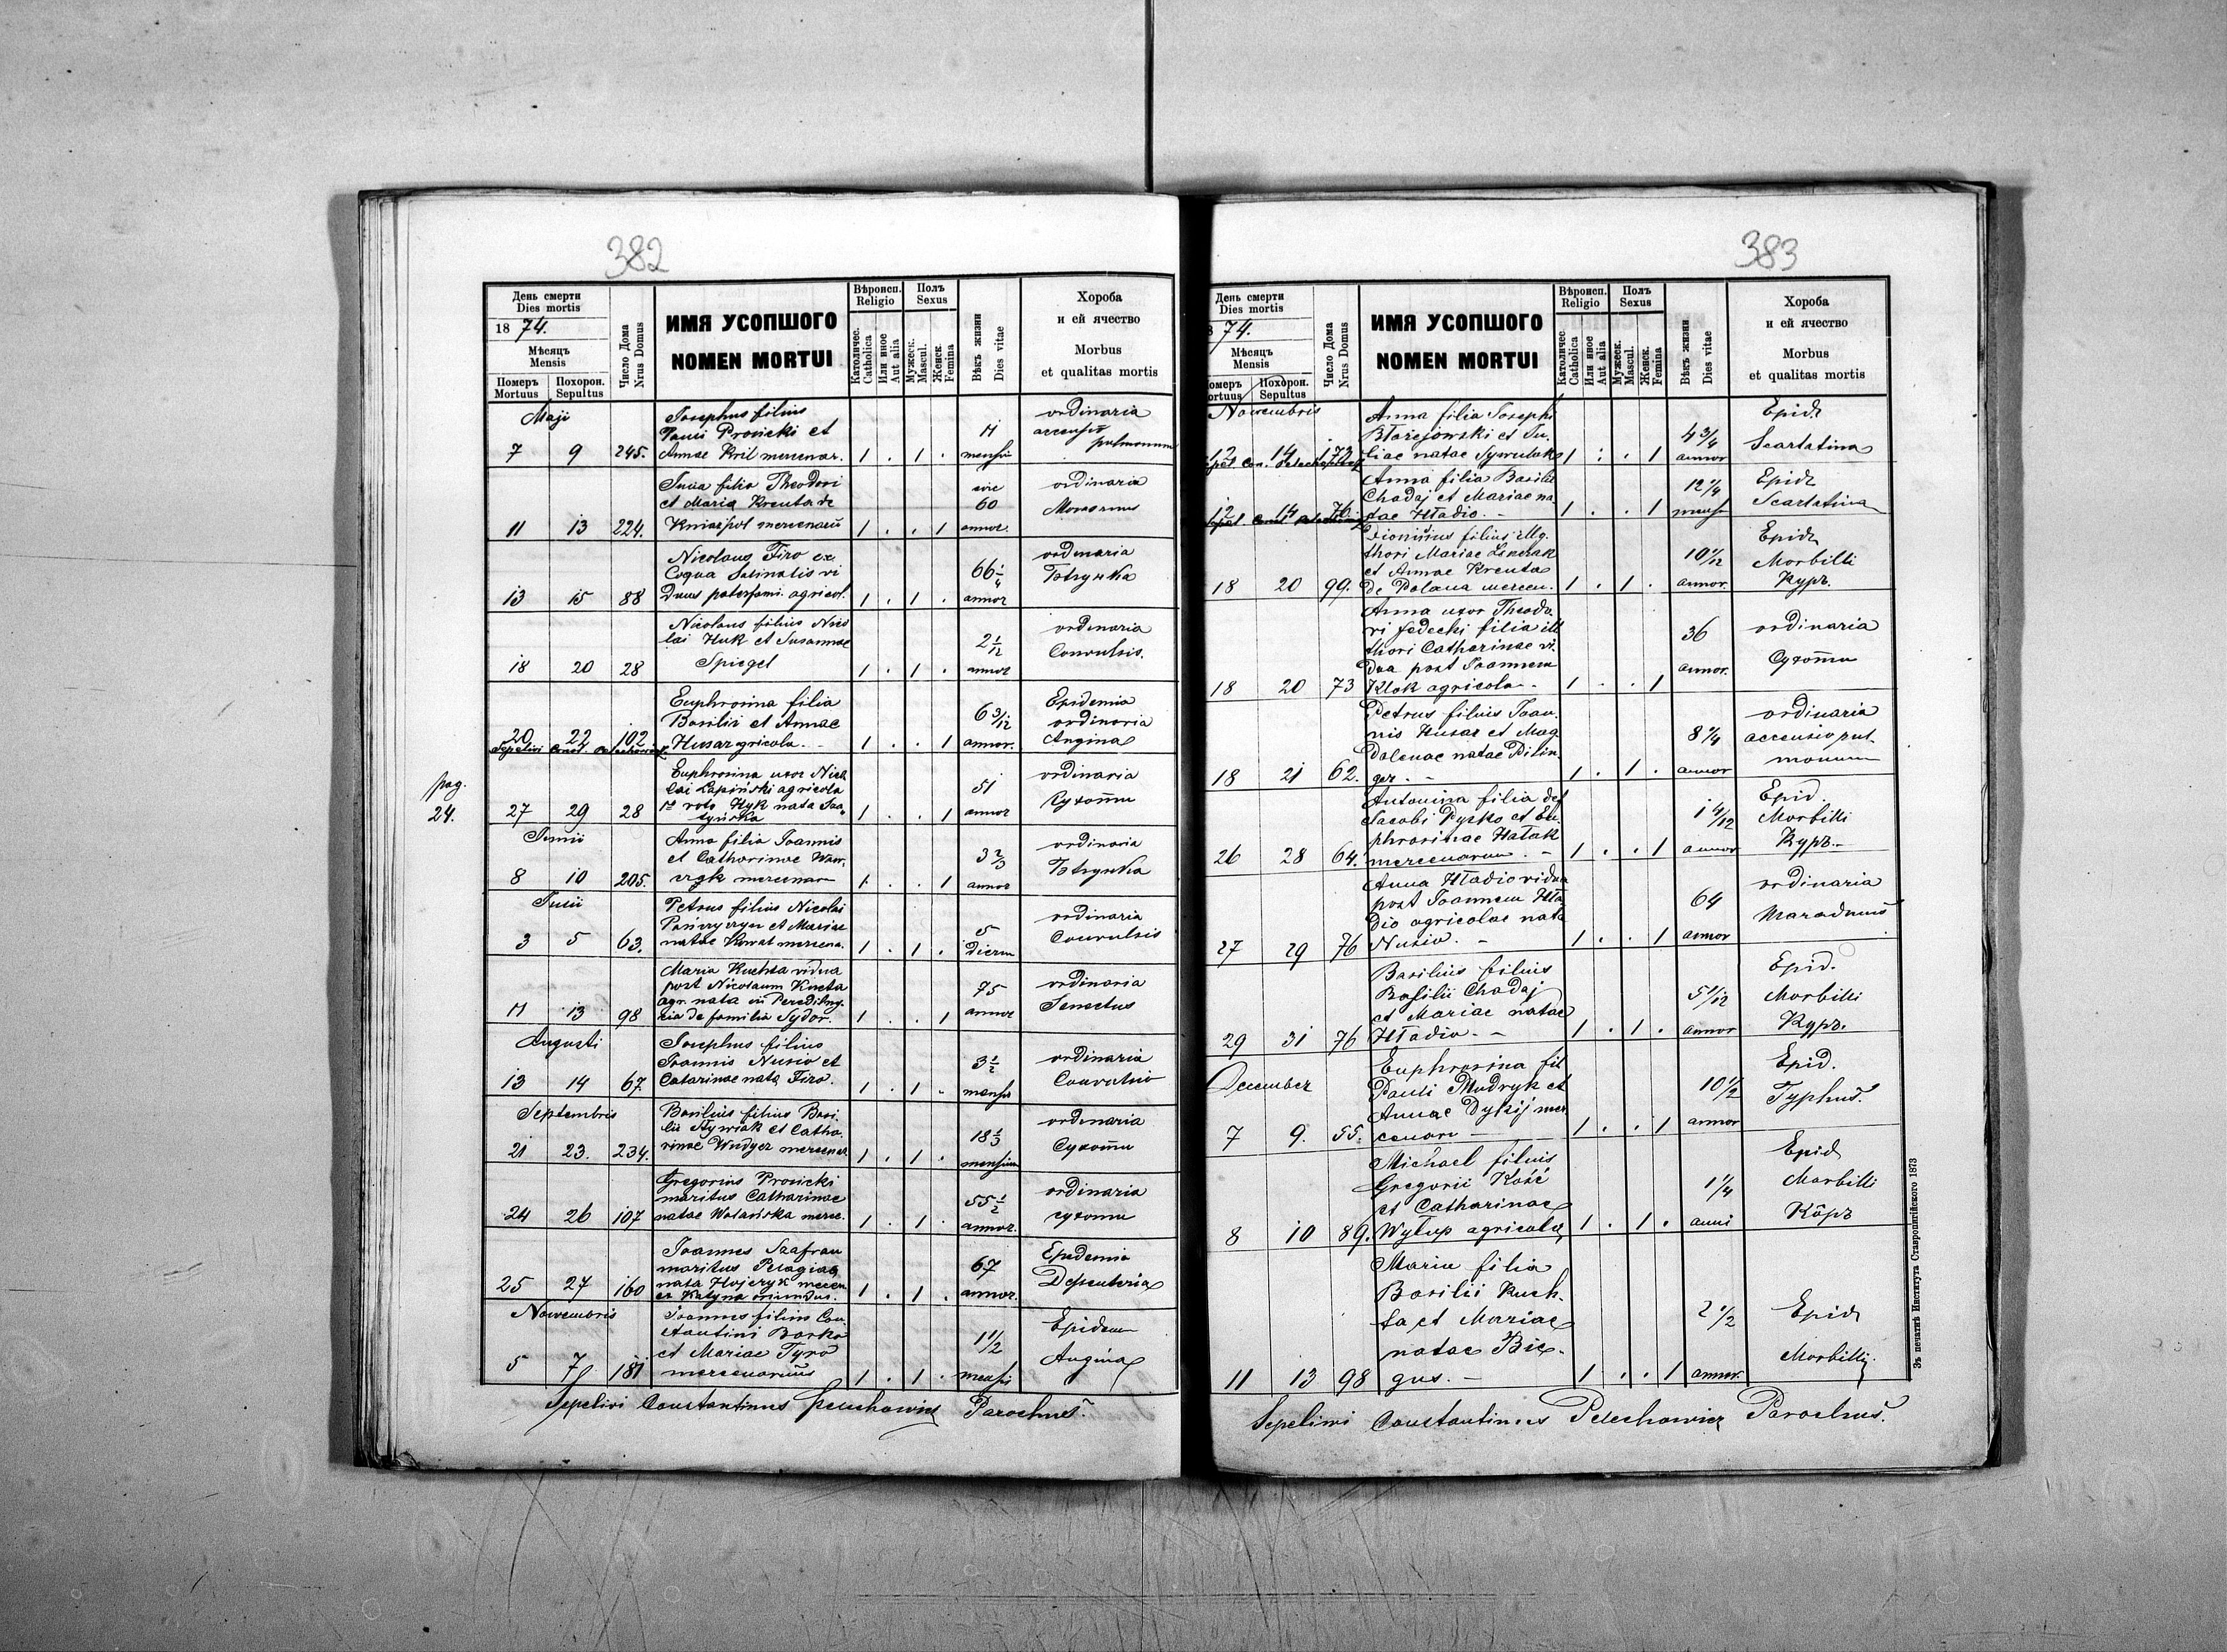 382
День смерти
Dies mortis
18 74.
Мѣсяцъ
Mensis
Померъ
Mortuus
Похорон.
Sepultus
Число Дома
Nrus Domus
ИМЯ УСОПШОГО
NOMEN MORTUI
Вѣроисп.
Religio
Католичес.
Catholica
Или иное
Aut alia
Полъ
Sexus
Мужеск.
Mascul.
Женск.
Femina
Вѣкъ жизни
Dies vitae
Хороба
и ей ячество
Morbus
et qualitas mortis
Maji
7 9 245.
Josephus filius
Pauli Prosicki et
Annae Kril mercenar.
1 . 1 .
11
mensium
ordinaria
pulmonum
11 13 224.
filia Theodori
et Maria Kreuta de
Kniaźpol
1 . . 1
60
annor.
ordinaria
13 15 88
Nicolaus Firo ex
Coqua Salinatis vi
duus agricol.
1 . 1 .
66 1/4
annor
ordinaria
18 20 28
Nicolaus filius Nico
lai Huk et Susannae
Spiegel
1 . 1 .
2 1/12
annor
ordinaria
Convulsis.
20 22 102
Euphrosina filia
Basilii et Annae
Husar agricola. -
1 . . 1
6 3/12
annor.
Epidemia
ordinaria
Angina
pag.
24.
27 29 28
Euphrosina uxor Nico
lai Łapiński agricola
nata
1 . . 1
51
annor
ordinaria
Junii
8 10 205.
Anna filia Joannis
et Catharinae
1 . . 1
3 2/3
annor
ordinaria
Julii
3 5 63.
Petrus filius Nicolai
et Mariae
natae Kowal mercena.
1 . 1 .
5
Dierum
ordinaria
Convulsis
11 13 98
Maria Kuchta vidua
post Nicolaum Kuchta
agr. nata in
de familia Sydor.
1 . . 1
75
annor
ordinaria
Senectus
Augusti
13 14 67.
Josephus filius
Joannis Nusio et
Catarinae nata Firo.
1 . 1 .
3 1/2
mensis
ordinaria
Convulsio
Septembris
21 23. 234.
Basilius filius Basi.
lii et Catha.
rinae mercenar.
1 . 1 .
18 1/3
mensium
ordinaria
24 26 107
Gregorius Prosicki
maritus Catharinae
natae Wolańska merce.
1 . 1 .
55 1/2
annor.
ordinaria
25 27 160
Joannes Szafran
maritus Pelagiae
nata
oriundus.
1 . 1 .
67
annor.
Epidemia
Novembris
5 7 181
Joannes filius Con.
stantini Borko
et Mariae Tyro
1 . 1 .
1 1/2
mensis
Epidem
Angina
Sepelivi Constantinus Pelechowicz Parochus.
383
День смерти
Dies mortis
74.
Мѣсяцъ
Mensis
Похорон.
Sepultus
Число Дома
Nrus Domus
ИМЯ УСОПШОГО
NOMEN MORTUI
Вѣроисп.
Religio
Католичес
Catholica
Или иное
Aut alia
Полъ
Sexus
Мужеск.
Mascul.
Женск.
Femina
Вѣкъ жизни
Dies vitae
Хороба
и ей ячество
Morbus
et qualitas mortis
Novembris
12 14 172
Anna filia Josephi
Błażejowski et Ju.
liae natae
1 : . 1
4 3/4
annor
Epid
Scarlatina
12 14 76
Anna filia Basilii
Chadaj et Mariae na.
tae Hładio. -
1 . . 1
12 1/4
mens
Epid
Scarlatina
18 20 99.
Dionisius filius
thori Mariae
et Annae Kreuta
de Polana mercen.
1 . 1 .
10 1/12
annor.
Epid
Morbilli
Курь.
18 20 73
Anna uxor Theodo.
ri Fedechi filia ill
thori Catharinae vi.
dua post Joannem
Klok agricola. -
1 . . 1
36
annor.
ordinaria
18 21 62.
Petrus filius Joan.
nis Husar et Mag
dalenae natae Dilin
ger. -
1 . 1 .
8 1/4
annor
ordinaria
accensio pul.
monum
26 28 64.
Antonina filia def
Jacobi Pysko et Eu
phrosinae Hałak
mercenarum. -
1 . . 1
1 4/12
annor
Epid.
Morbilli
Курь. -
27 29 76
Anna Hładio vidua
post Joannem Hła
dio agricolae nata
Nusio. -
1 . . 1
64
annor
ordinaria
29 31 76
Basilius filius
Basilii Chadaj
et Mariae natae
Hładio. -
1 . 1 .
5 1/12
annor
Epid.
Morbilli
Курь.
December
7 9. 55.
Euphrosina fil
Pauli Mudryk et
Annae Dykij mer
cenar -
1 . . 1
10 1/2
annor
Epid.
Typhus.
8 10 89.
Michael filius
Gregorii Kość
et Catharinae
Wytup agricolae
1 . 1 .
1 1/4
anni
Epid
Morbilli
Кôрь
11 13 98
Maria filia
Basilii Kuch.
ta et Mariae
natae Bie.
gus. -
1 . . 1
2 1/2
annor.
Epid
Morbilli
Sepelivi Constantinus Pelechowicz Parochus.
Зъ печатнѣ Института Ставропигійского 1873